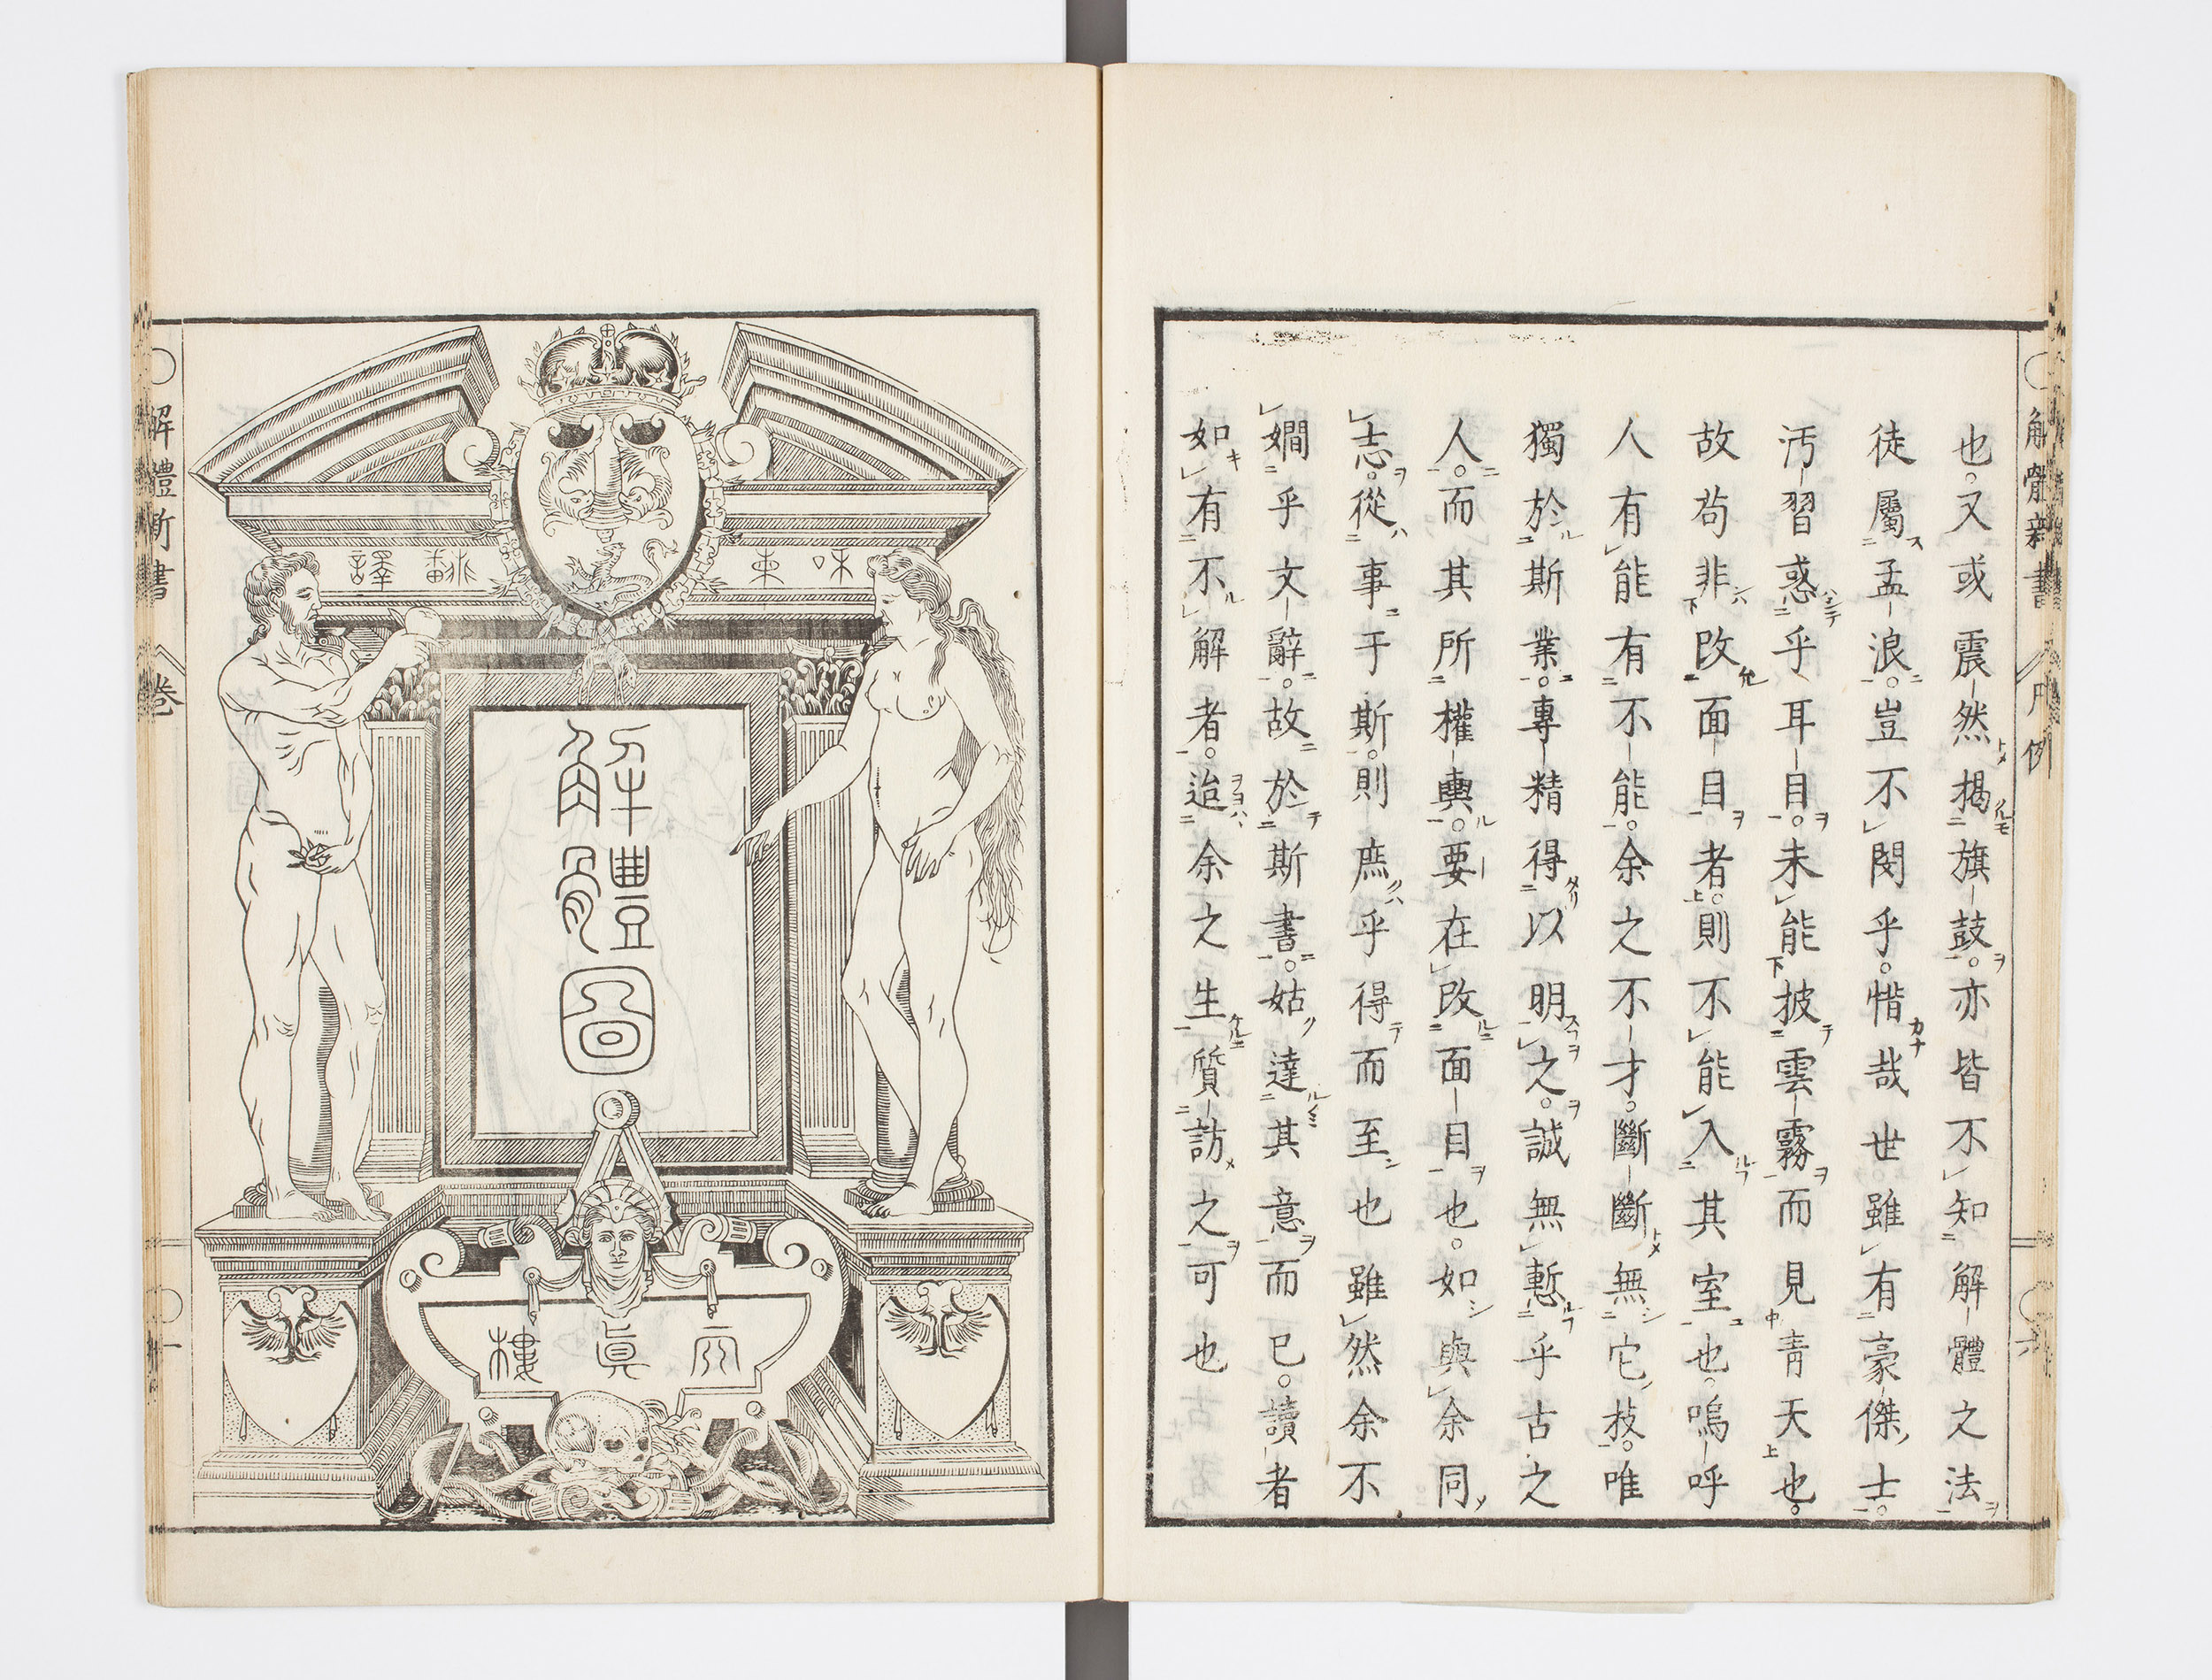 解體新書 凡例 六
也。又或震然揭旗鼓。亦皆不知解體之法
徒屬孟浪。豈不閔乎。惜哉世雖有豪傑士。
汚習惑乎耳目。未能披雲霧而見靑天也。
故苟非改面目者。則不能入其室也。嗚呼
人有能有不能。余之不才。斷斷無它技。唯
獨於斯業。專精得以明之。誠無慙乎古之
人。而其所權輿。要在改面目也。如與余同
志。從事于斯。則庶乎得而至也雖然余不
嫺乎文辭。故於斯書。姑達其意而已。讀者
如有不解者。迨余之生質訪之可也
和東
飜譯
解體圖
天眞樓
解體新書 卷 一